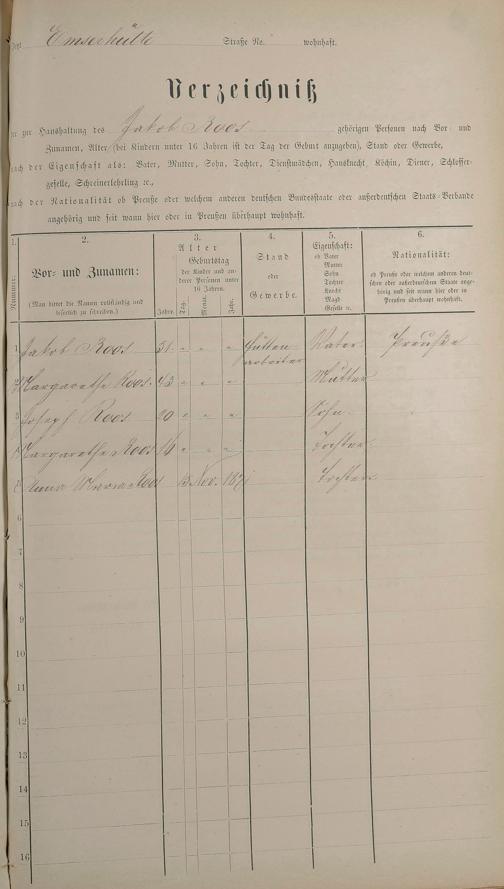 Emserhütte Straße No. wohnhaft.
Verzeichniß
der zur Haushaltung des Jakob Roos gehörigen Personen nach Vor- und
Zunamen, Alter (bei Kindern unter 16 Jahren ist der Tag der Geburt anzugeben), Stand oder Gewerbe,
nach der Eigenschaft als: Vater, Mutter, Sohn, Tochter, Dienstmädchen, Hausknecht, Köchin, Diener, Schlosser-
geselle, Schreinerlehrling ꝛc.,
nach der Nationalität ob Preuße oder welchem anderen deutschen Bundesstaate oder außerdeutschen Staats-Verbande
angehörig und seit wann hier oder in Preußen überhaupt wohnhaft.
1.
Nummer:
2.
Vor- und Zunamen:
(Man bittet die Namen vollständig und
leserlich zu schreiben.)
3.
Alter
Geburtstag
der Kinder und an-
derer Personen unter
16 Jahren.
Jahre.
Tag.
Monat.
Jahr.
4.
Stand
oder
Gewerbe.
5.
Eigenschaft:
ob Vater
Mutter
Sohn
Tochter
Knecht
Magd
Geselle ꝛc.
6.
Nationalität:
ob Preuße oder welchem anderen deut-
schen oder außerdeutschen Staate ange-
hörig und seit wann hier oder in
Preußen überhaupt wohnhaft.
1 Jakob Roos 51 " " " Hütten Vater Preuße
arbeiter
2 Margarethe Roos. 43 " " " Mutter
3 Joseph Roos 20 " " " Sohn
4 Margarethe Roos 16 " " " Tochter
5 Anna Maria Roos 13 Nov. 187 Tochter
6
7
8
9
10
11
12
13
14
15
16